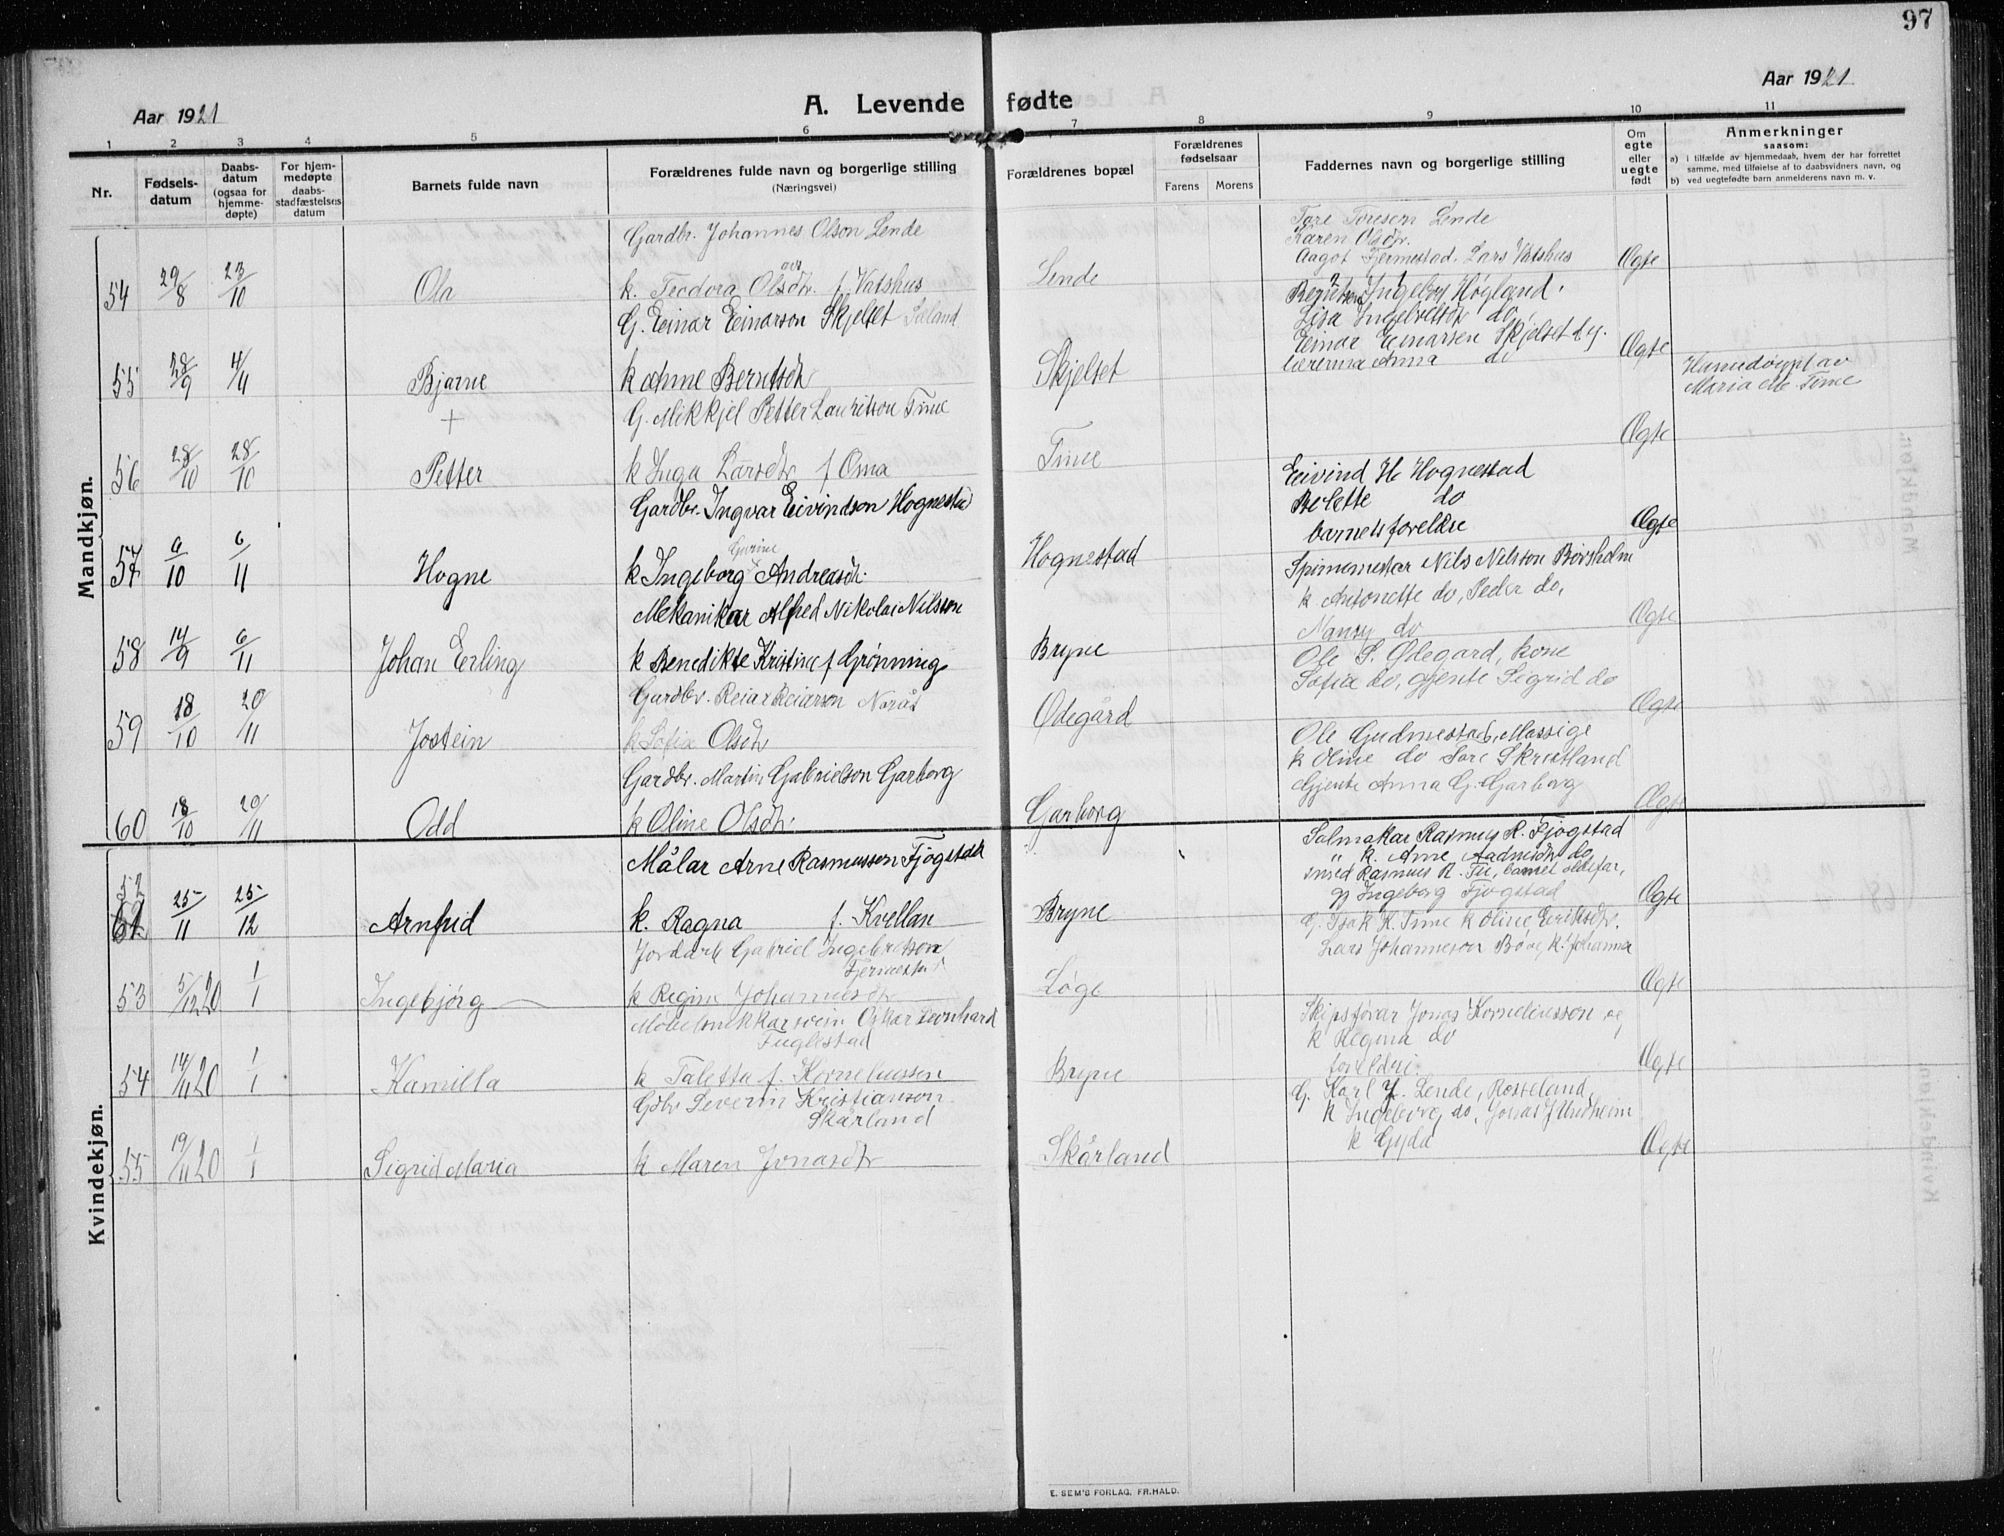 97
Aar 1921
A. Levende fødte
Aar 1921
1 2 3 4 5 6 7 8 9 10 11
Nr.
Fødsels-
datum
Daabs-
datum
(ogsaa for
hjemme-
døpte)
For hjem-
medøpte
daabs-
stadfæstelses
datum
Barnets fulde navn
Forældrenes fulde navn og borgerlige stilling
(Næringsvei)
Forældrenes bopæl
Forældrenes
fødselsaar
Farens Morens
Faddernes navn og borgerlige stilling
Om
egte
eller
uegte
født
Anmerkninger
saasom:
a) i tilfælde av hjemmedaab, hvem der har forrettet
samme, med tilføielse af to daabsvidners navn, og
b) ved uegtefødte barn anmelderens navn m. v.
Mandkjøn.
Gardbr. Johannes Olson Lende
54 29/8 23/10 Ola k. Teodora Olsdtr. f. Vatshus Lende
Tore Toresen Lende
Karen Olsdtr.
Aagot Fjermestad. Lars Vatshus
Ægte
G. Einar Einarson Skjelset
55 28/9 4/11 Bjarne k Anne Berntsdtr Skjelset
Ingeborg Høyland.
Lisa Ingebretsdtr do,
Einar Einarsen Skjelset
Anna do
Ægte
+
G. Mikkjel Petter Lauritson Time
56 28/10 28/10 Petter k Inga Larsdtr f Oma Time
Ægte
Heimedøypt av
Maria Time
Gardbr. Ingvar Eivindson Hognestad
57 6/10 6/11 Hogne k Ingeborg Gurine Andreasdtr. Hognestad
Eivind H Hognestad
Berette do
barnets foreldre
Ægte
Mekanikar Alfred Nikolai Nilsson
58 14/9 6/11 Johan Erling k Benedikte Kristine f Grønning Bryne
Spinnemestar Nils Nilsson Børsholm
k Antonette do, Peder do,
Nancy do
Ægte
Gardbr. Reiar Reiarson Norås
59 18/10 20/11 Jostein k Sofie Olsdtr Ødegård
Ole S. Ødegard, kone
Sofie do, gjente Sigrid do
Ægte
Gardbr. Martin Gabrielson Garborg
60 18/10 20/11 Odd k Oline Olsdtr. Garborg
Ole Gudmestad, Massige
k Oline do Tore Skretland
Gjente Anna G. Garborg
Ægte
Kvindekjøn.
Målar Arne Rasmusson Fjogstad
52
61 25/11 25/12 Arnfrid k. Ragna f. Kvellan Bryne
Salmakar Rasmus R. Fjogstad
" k. Anne Aadnesdtr do
med Rasmus R. Tu, barnet oldefar,
og Ingeborg Fjogstad
Ægte
Jordark Gabriel Ingebretson
Fjermestad
53 5/12 20 1/1 Ingebjörg k Regine Johannesdtr Løge
G. Isak K. Time k Oline Eriksdtr.
Lars Johanneson Bøve, k. Johanna
Ægte
Møbelsnekkarsvein Oskar Leonhard
Fuglestad
54 14/11 20 1/1 Kamilla k Taletta f. Korneliussen Bryne
Skipsførar Jonas Korneliusson og
k Regina do
foreldri.
Ægte
Gdbr Severin Kristianson
Skårland
55 19/11 20 1/1 Sigrid Maria k Maren Jonasdtr Skårland
G. Karl J. Lende, Rosseland,
k Ingeborg do, Jonas J Undheim
k Gyda
Ægte
E. SEM'S FORLAG, FR.HALD.